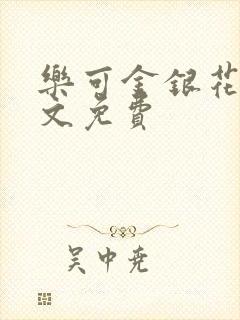 樂可金銀花
文免費
吴中尭